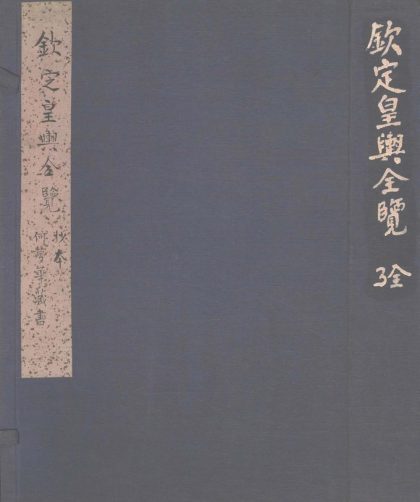 欽定皇輿全覽 全
欽定皇輿全覽
抄本
何夢華藏書